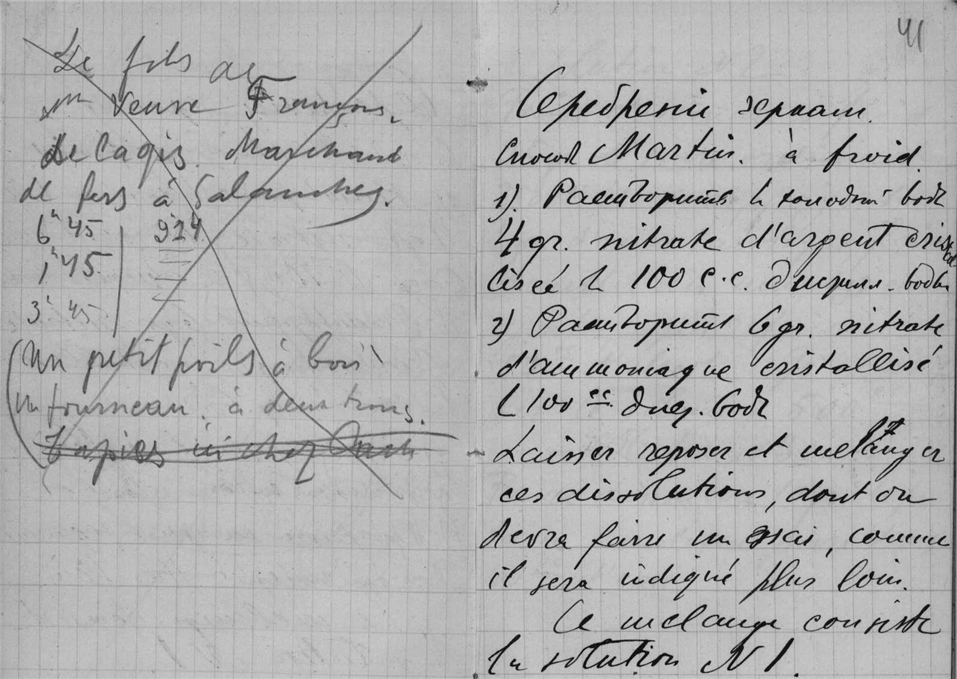 Le fils de
Veuve François.
Marchand
de fers à Salanches.
6 45 924
1 45
3 45
un petit poils à bois
un fourneau à deux trous.
Tapies ici chez
41
Серебренiе зеркал.
способ Martin. à froid
1). Растворить в холодной воде
4 gr. nitrate d'argent cristal
lisée в 100 c.c. дистилл. воды
2) Растворить 6 gr. nitrate
d'ammoniaque cristallisé
в 100 cc дист. воде
Laisser reposer et mélanger
ces dissolutions, dont on
devra faire un essai, comme
il sera indiqué plus loin.
Ce mélange consiste
la solution N 1.